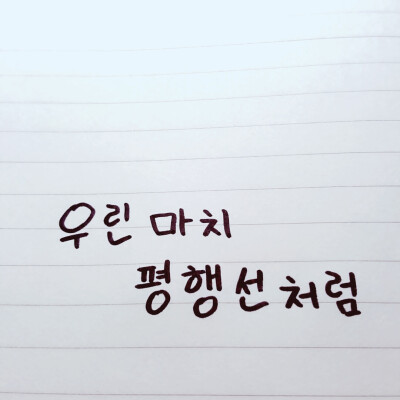 우린 마치
평행선처럼